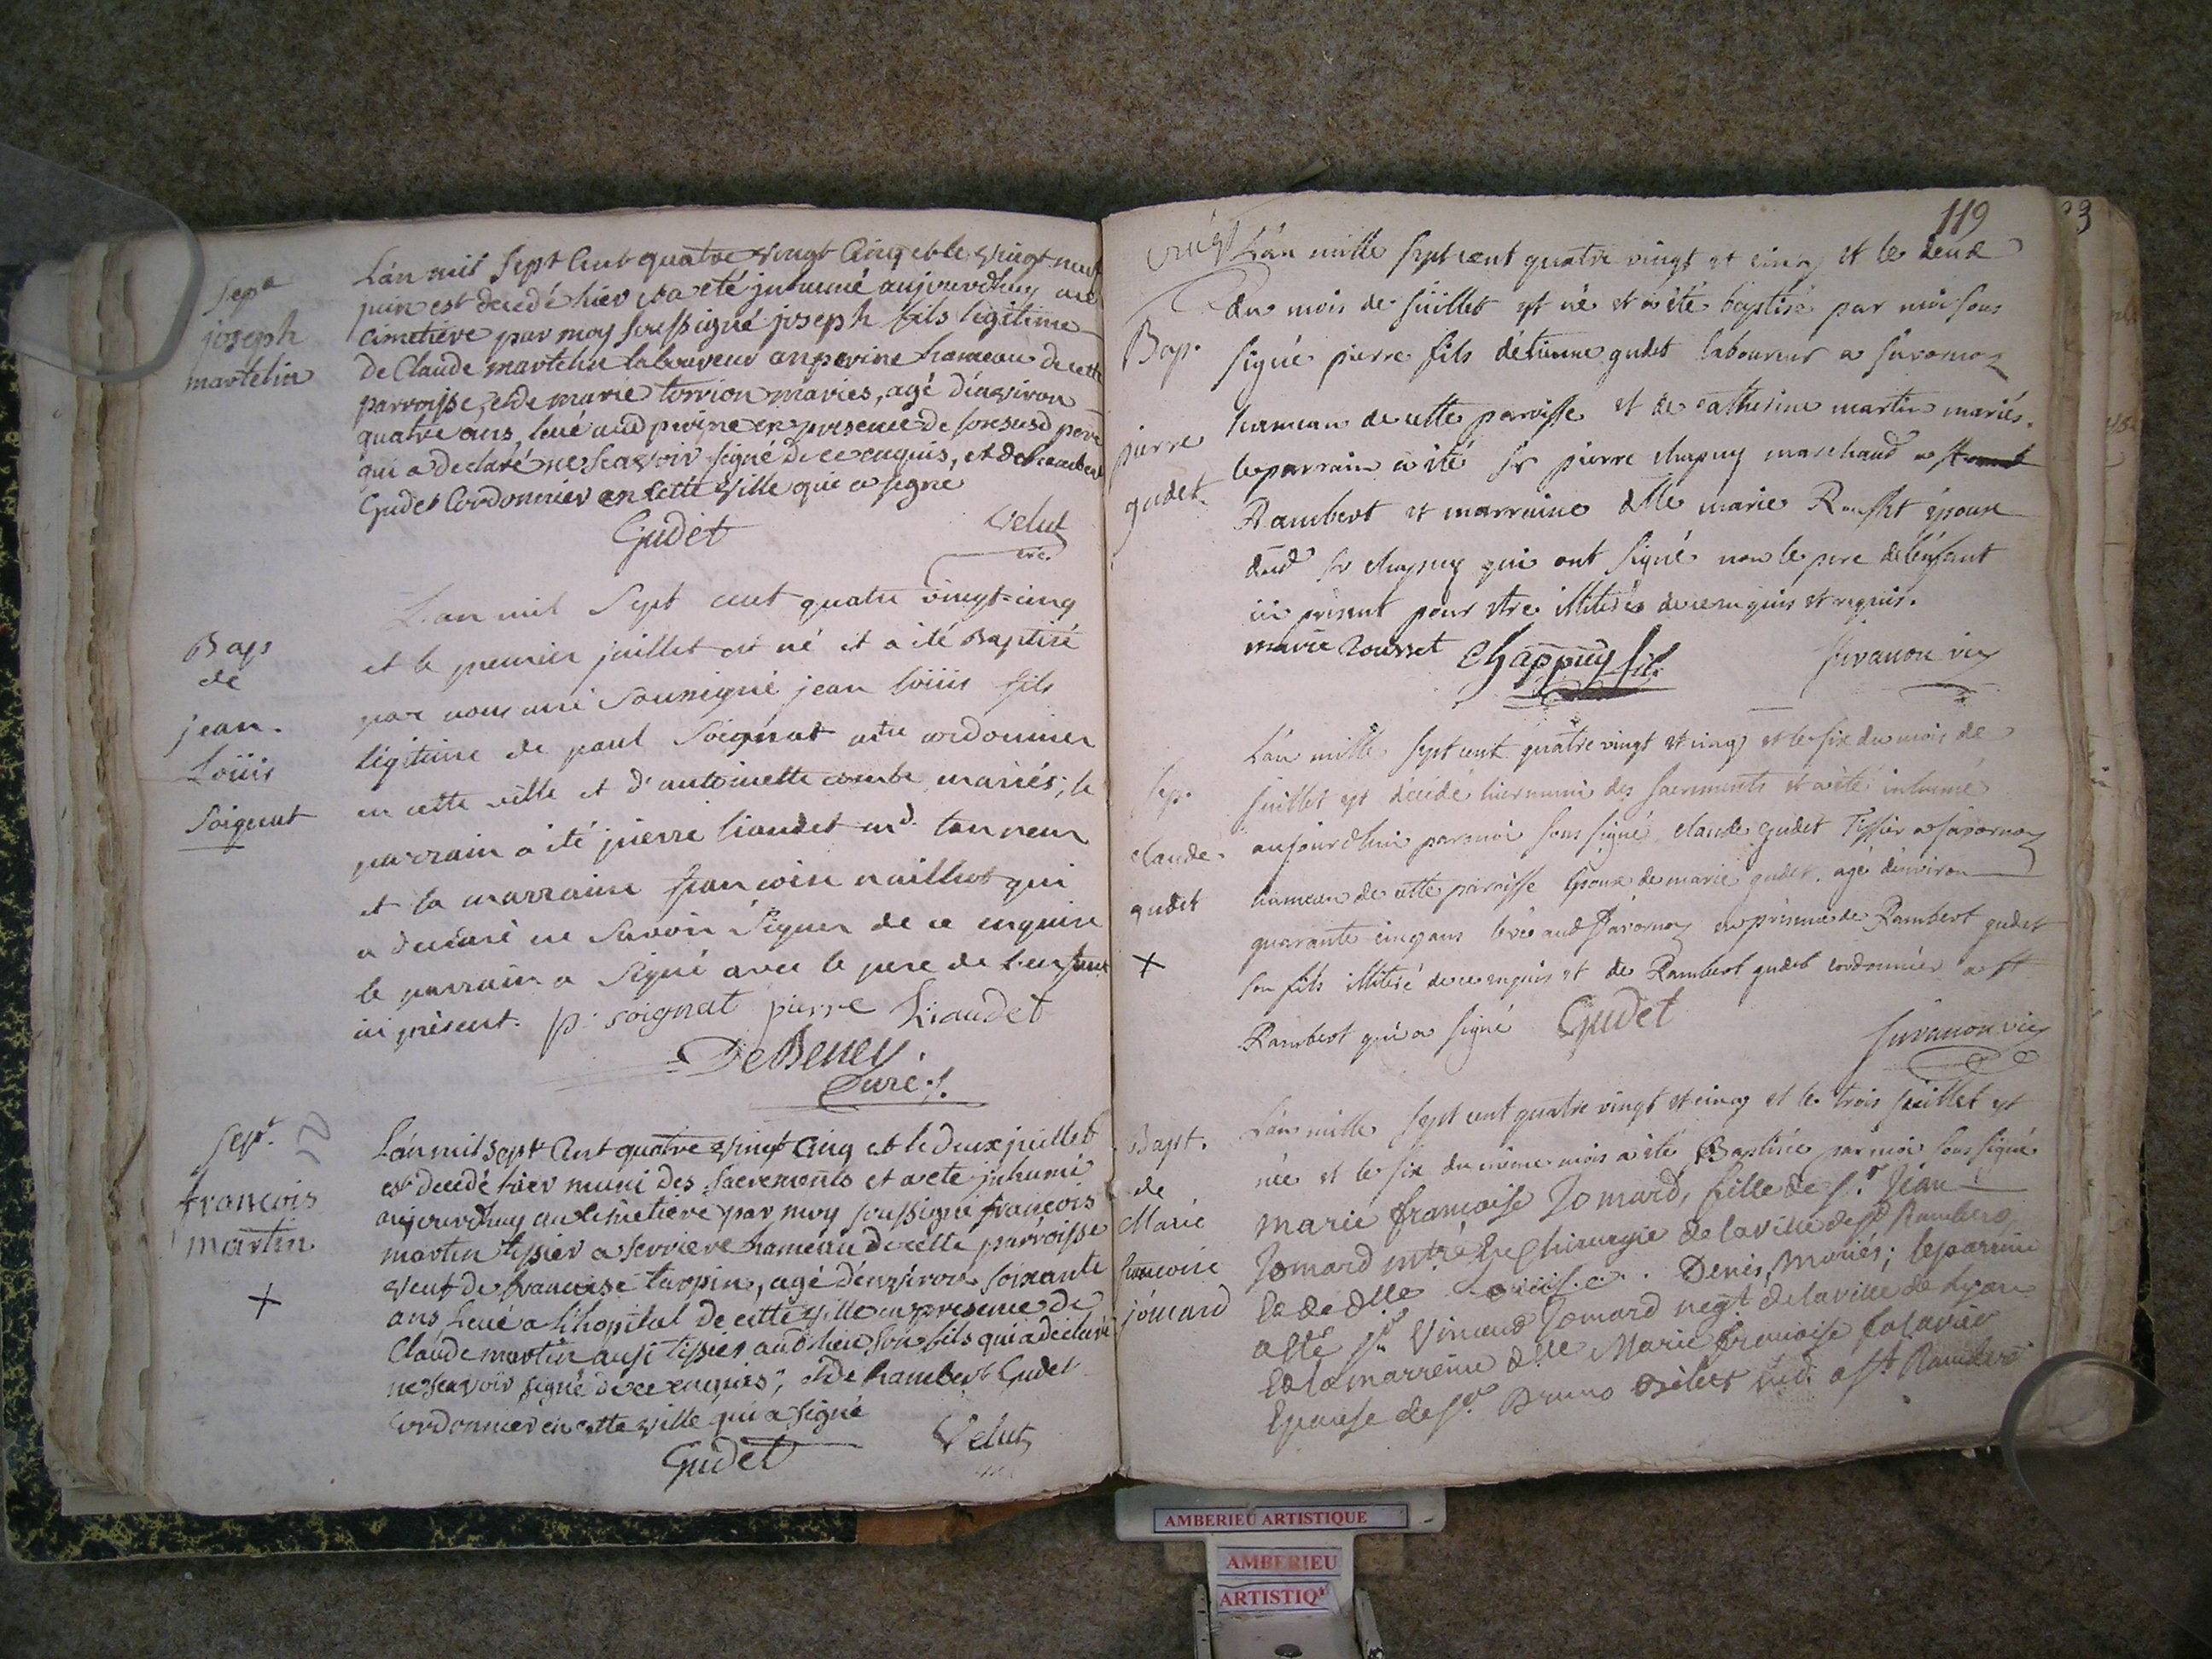 Sep.
joseph
martelin
L'an mil sept cent quatre vingt cinq et le vingt neuf
juin est decedé hier et a eté jnhumé aujourdhuy au
cimetiere par moy soussigné joseph fils legitime
de Claude martelin laboureur en hameau de cette
parroisse, et de marie torrion mariés, agé d'environ
quatre ans, levé aud en presence de son susd pere
qui a declaré ne scavoir signé de ce enquis, et de Rambert
Gudet Cordonnier en cette ville qui a signé
Gudet Velut
vic.
Bap
de
jean-
Loüis
Soignat
L'an mil sept cent quatre vingt-cinq
et le premier juillet est né et a été Baptisé
par nous curé soussigné jean loüis fils
légitime de paul Soignat mtre cordonnier
en cette ville et d'antoinette combe mariés; le
parrain a été pierre liaudet md. tanneur
et la marraine francoise naillod qui
a declaré ne savoir signer de ce enquise
le parrain a signé avec le pere de l'enfant
ici présent. p. soignat pierre Liaudet
DeBeney
Curé.
Sepr.
francois
martin
+
L'an mil sept Cent quatre vingt Cinq et le deux juillet
est decedé hier muni des sacrements et a eté jnhumé
aujourdhuy au Cimetiere par moy soussigné francois
martin tissier a serriere hameau de cette parroisse
veuf de francoise turopin, agé d'environ soixante
ans levé a l'hopital de cette ville en presence de
Claude martin ausi tissier aud lieu son fils qui a declaré
ne scavoir signé de ce enquis; et de Rambert Gudet
Cordonnier en cette ville qui a signé
Gudet Velut
119
23
vingt L'an mille sept cent quatre vingt et cinq et le deux
du mois de juillet est né et a été baptisé par moi sous
Bap.
pierre
gudet
signé pierre fils détienne gudet laboureur a
hameau de cette paroisse et de catherine martin mariés.
le parrain a été sr pierre chapuy marchand a st
Rambert et marraine dlle marie Rousset épouse
dud sr chapuy qui ont signé non le pere de l'enfant
ici présent pour etre illiteré de ce enquis et requis.
marie Rousset Chappuy fils juvanon vic
Sep.
claude
gudet
+
L'an mille sept cent quatre vingt et cinq et le six du mois de
juillet est décédé hier muni des sacrements et a été inhumé
aujourdhui par moi sous signé claude gudet Tissier a
hameau de cette paroisse époux de marie gudet agé denviron
quarante cinq ans levé aud en présence de Rambert gudet
son fils illiteré de ce enquis et de Rambert gudet cordonnier a st
Rambert qui a signé Gudet
juvanon vic
Bapt.
de
Marie
francoise
jomard
L'an mille sept cent quatre vingt et cinq et le trois juillet est
née et le six du même mois a été Baptisée par moi sous signé
marie françoise Jomard, fille de sr. Jean
Jomard mtre En Chirurgie de la ville de st Rambert
Et de dlle Denis, Mariés; le parrain
a été sr. Vincend Jomard negt. de la ville de Lyon
Et la marreine dlle Marie françoise
Epouse de sr. Bruno md. a st. Rambert
AMBERIEU ARTISTIQUE
AMBERIEU
ARTISTIQ